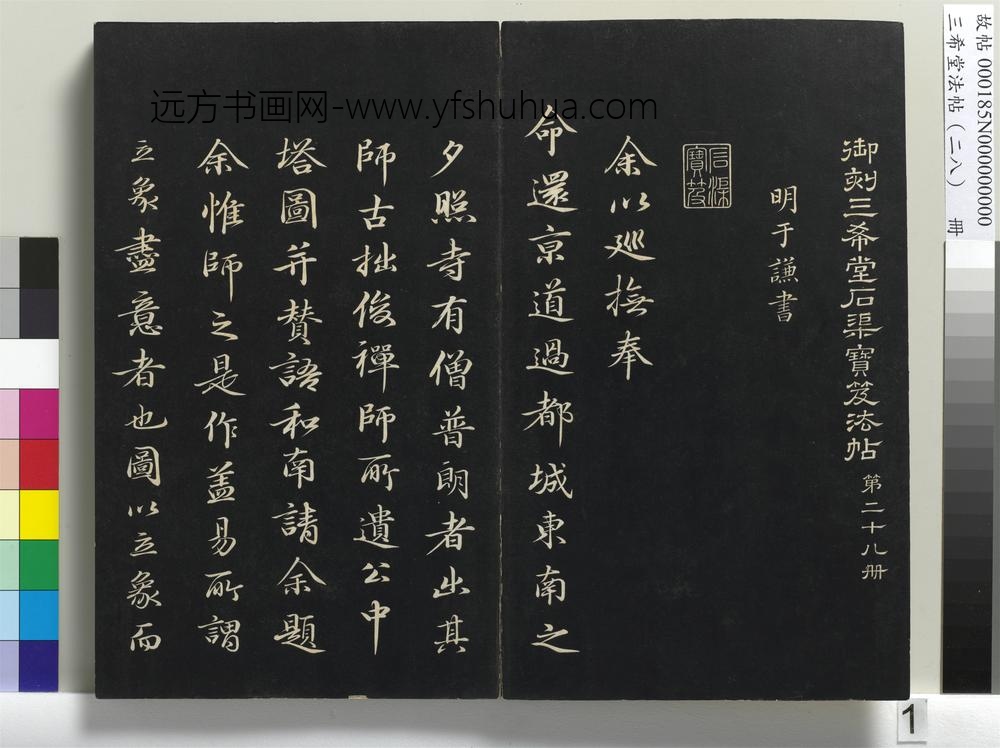 御刻三希堂石渠寶笈法帖 第二十八册
明于謙書
石渠寶笈
余以巡撫奉
命還京道過都城東南之
夕照寺有僧普朗者出其
師古拙俊禪師所遺公中
塔圖并賛語和南請余題
余惟師之是作盖易所謂
立象盡意者也圖以立象而
远方书画网-www.yfshuhua.com
故帖 000185N000000000
三希堂法帖（二八） 冊
1